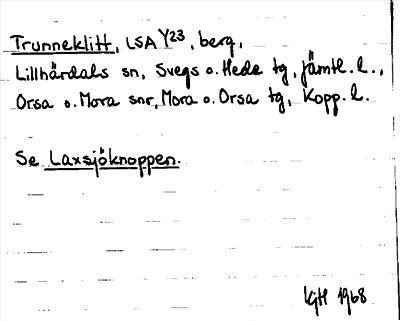 Trunneklitt, LSA Y23, berg,
Lillhärdals sn, Svegs o. Hede tg, Jämtl. l.,
Orsa o. Mora snr, Mora o. Orsa tg, Kopp. l.
Se Laxsjöknoppen.
KjH 1968